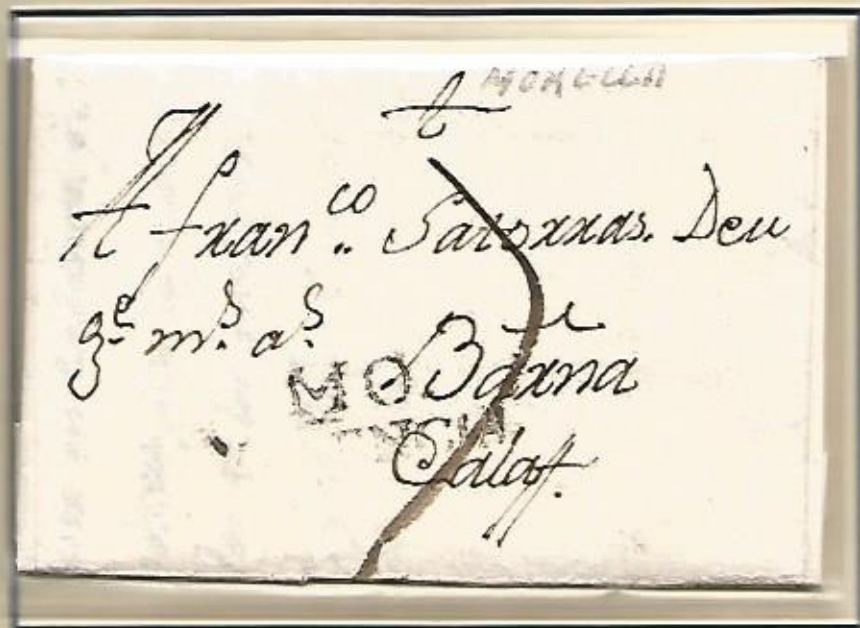 MORELLA
A fran.co Satorras. Deu
g.e m.s a.s
Barna
Calaf.
MO